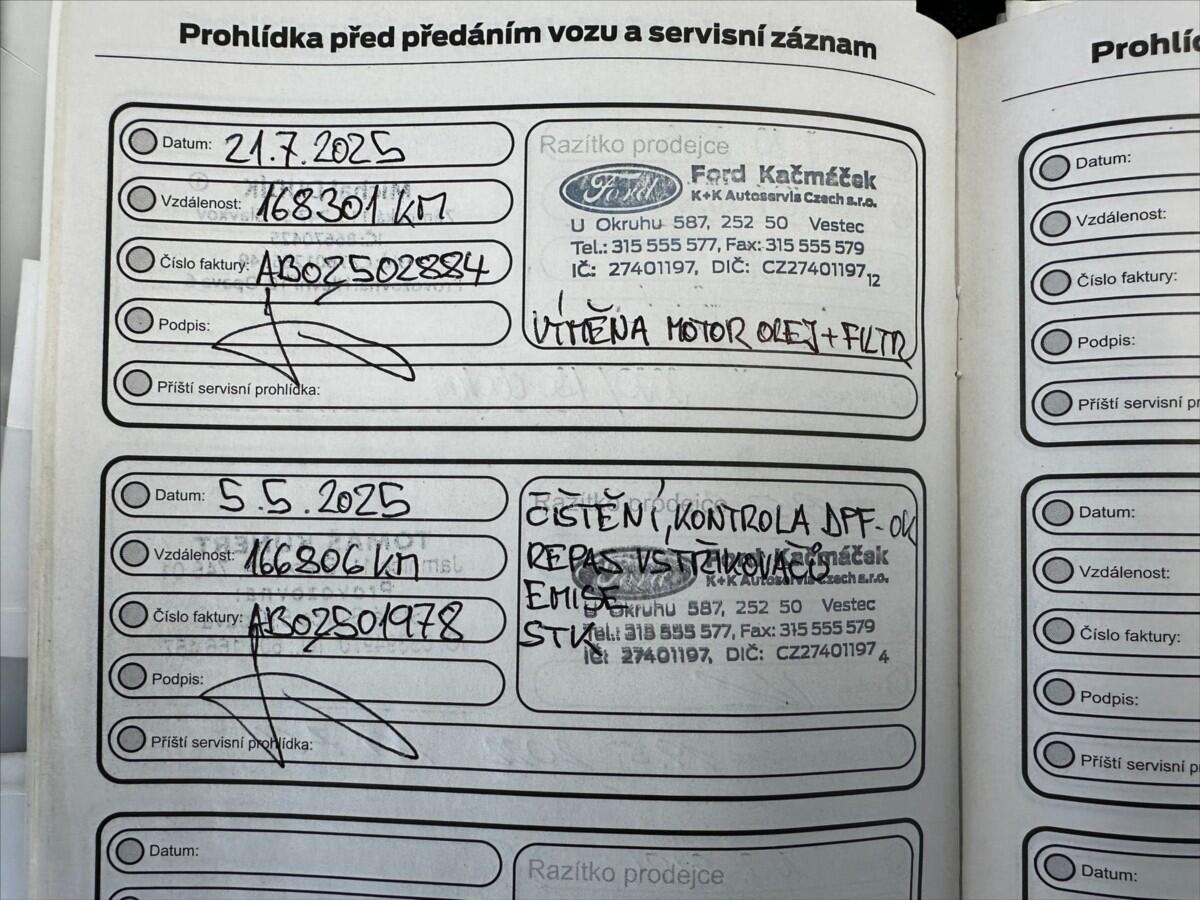 Prohlídka před předáním vozu a servisní záznam
Datum: 21.7.2025
Vzdálenost: 168301 KM
Číslo faktury: AB02502884
Podpis:
Příští servisní prohlídka:
Razítko prodejce
Ford
Ford Kačmáček
K+K Autoservis Czech s.r.o.
U Okruhu 587, 252 50 Vestec
Tel.: 315 555 577, Fax: 315 555 579
IČ: 27401197, DIČ: CZ27401197
12
VÝMĚNA MOTOR OLEJ + FILTR
Datum: 5.5.2025
Vzdálenost: 166806 KM
Číslo faktury: AB02501978
Podpis:
Příští servisní prohlídka:
Razítko prodejce
ČIŠTĚNÍ, KONTROLA DPF-OK
REPAS VSTŘIKOVAČŮ
EMISE
STK
Ford Kačmáček
K+K Autoservis Czech s.r.o.
U Okruhu 587, 252 50 Vestec
Tel.: 315 555 577, Fax: 315 555 579
IČ: 27401197, DIČ: CZ27401197
4
Datum:
Razítko prodejce
Datum:
Vzdálenost:
Číslo faktury:
Podpis:
Příští servisní
Datum:
Vzdálenost:
Číslo faktury:
Podpis:
Příští servisní
Datum: